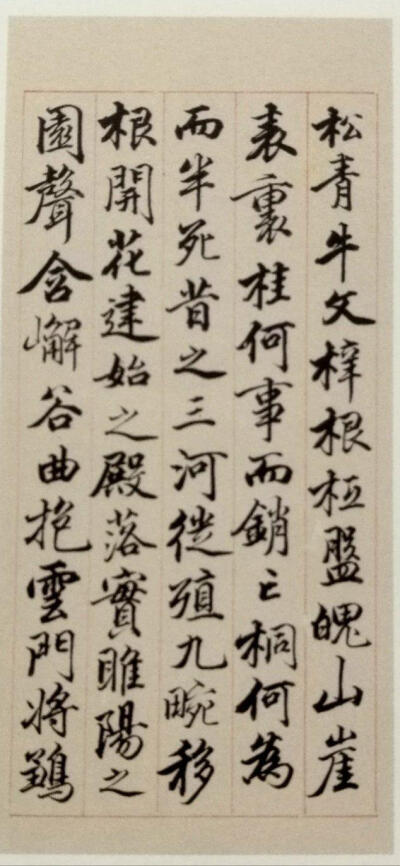 松青牛文梓根柢盤魄山崖
表裏桂何事而銷亡桐何為
而半死昔之三河徙殖九畹移
根開花建始之殿落實睢陽之
園聲含嶰谷曲抱雲門將鶵